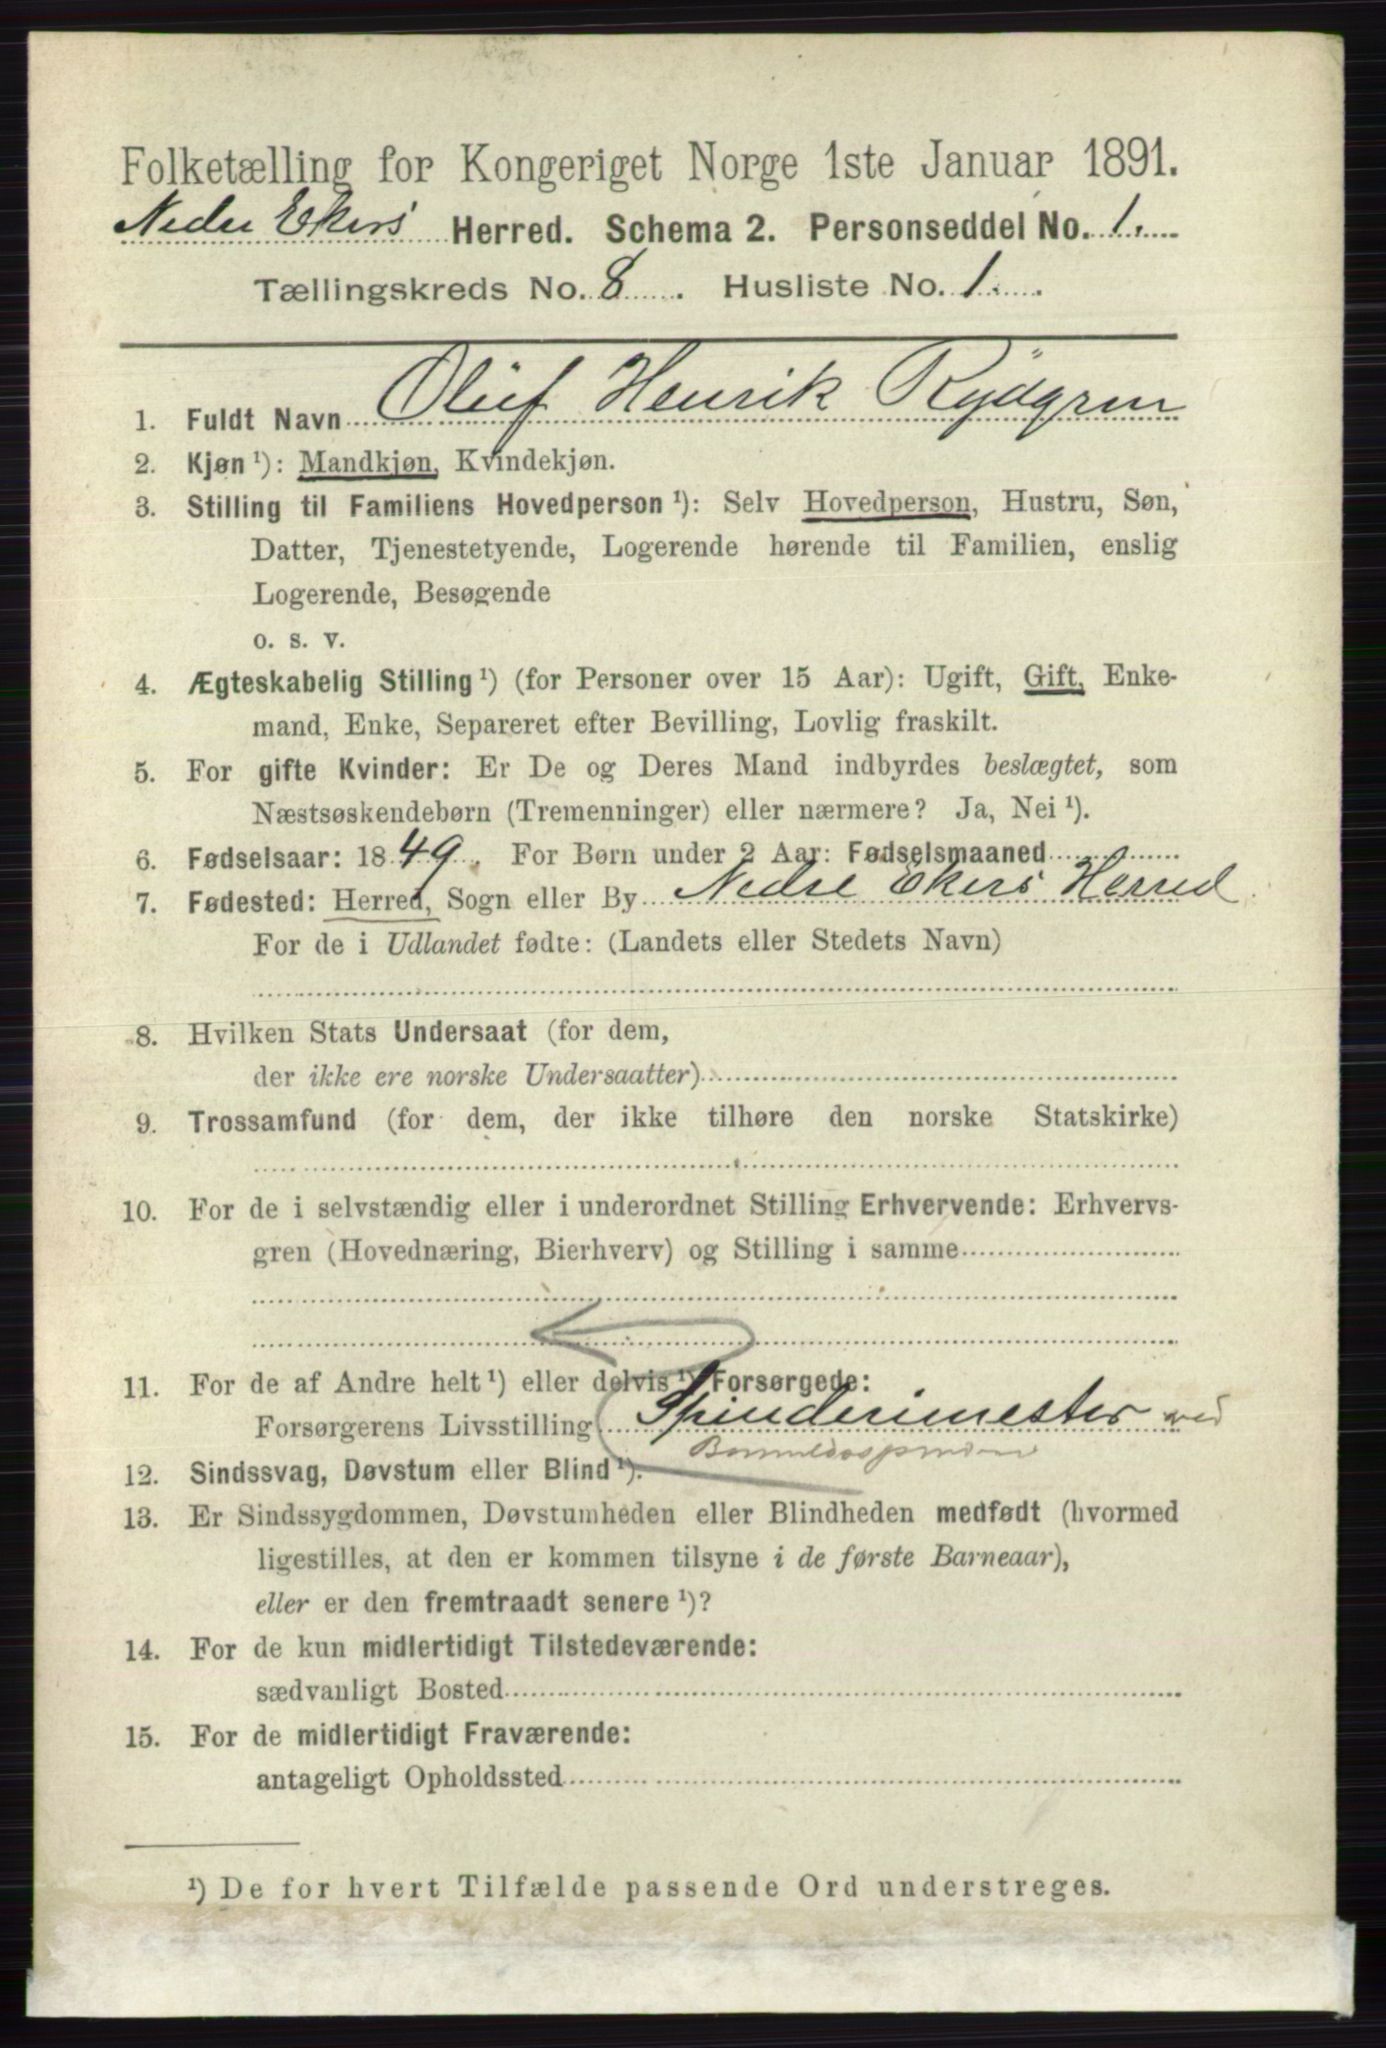 Folketælling for Kongeriget Norge 1ste Januar 1891.
Nedre Ekers Herred. Schema 2. Personseddel No. 1.
Tællingskreds No. 8. Husliste No. 1.
1. Fuldt Navn Oluf Henrik Rydgren
2. Kjøn ¹): Mandkjøn, Kvindekjøn.
3. Stilling til Familiens Hovedperson ¹): Selv Hovedperson, Hustru, Søn,
Datter, Tjenestetyende, Logerende hørende til Familien, enslig
Logerende, Besøgende
o. s. v.
4. Ægteskabelig Stilling ¹) (for Personer over 15 Aar): Ugift, Gift, Enke-
mand, Enke, Separeret efter Bevilling, Lovlig fraskilt.
5. For gifte Kvinder: Er De og Deres Mand indbyrdes beslægtet, som
Næstsøskendebørn (Tremenninger) eller nærmere? Ja, Nei ¹).
6. Fødselsaar: 1849. For Børn under 2 Aar: Fødselsmaaned
7. Fødested: Herred, Sogn eller By Nedre Ekers Herred
For de i Udlandet fødte: (Landets eller Stedets Navn)
8. Hvilken Stats Undersaat (for dem,
der ikke ere norske Undersaatter)
9. Trossamfund (for dem, der ikke tilhøre den norske Statskirke)
10. For de i selvstændig eller i underordnet Stilling Erhvervende: Erhvervs-
gren (Hovednæring, Bierhverv) og Stilling i samme
11. For de af Andre helt ¹) eller delvis ¹) Forsørgede:
Forsørgerens Livsstilling Spinderimester ved
Bomuldsspinderi
12. Sindssvag, Døvstum eller Blind ¹).
13. Er Sindssygdommen, Døvstumheden eller Blindheden medfødt (hvormed
ligestilles, at den er kommen tilsyne i de første Barneaar),
eller er den fremtraadt senere ¹)?
14. For de kun midlertidigt Tilstedeværende:
sædvanligt Bosted
15. For de midlertidigt Fraværende:
antageligt Opholdssted
¹) De for hvert Tilfælde passende Ord understreges.